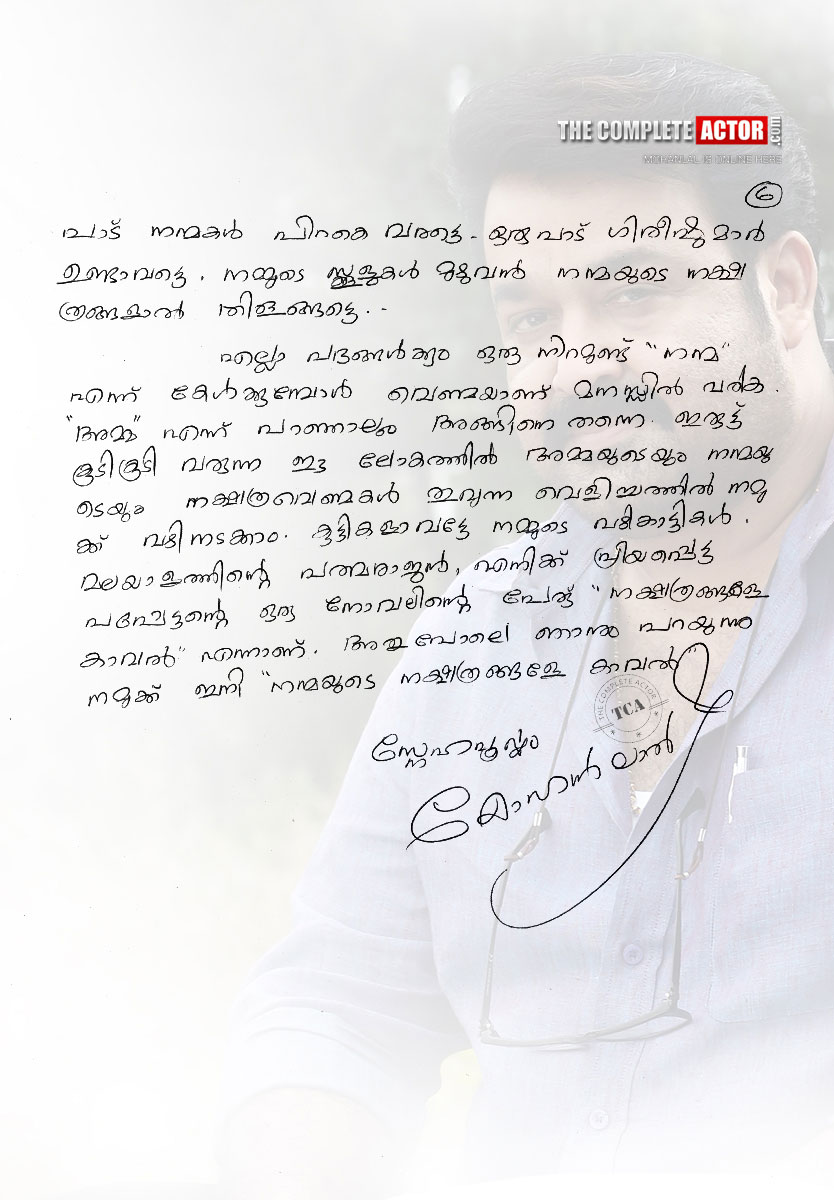 THE COMPLETE ACTOR .com
MOHANLAL IS ONLINE HERE
6
പാട് നന്മകൾ പിറകെ വരട്ടെ. ഒരുപാട് ഗിരീഷുമാർ
ഉണ്ടാവട്ടെ. നമ്മുടെ സ്ക്കൂളുകൾ മുഴുവൻ നന്മയുടെ നക്ഷ
ത്രങ്ങളാൽ തിളങ്ങട്ടെ..
എല്ലാ പദങ്ങൾക്കും ഒരു നിറമുണ്ട് "നന്മ"
എന്ന് കേൾക്കുമ്പോൾ വെണ്മയാണ് മനസ്സിൽ വരിക.
"അമ്മ" എന്ന് പറഞ്ഞാലും അങ്ങിനെ തന്നെ. ഇരുട്ട്
കൂടികൂടി വരുന്ന ഈ ലോകത്തിൽ അമ്മയുടെയും നന്മയു
ടെയും നക്ഷത്രവെണ്മകൾ തൂവുന്ന വെളിച്ചത്തിൽ നമു
ക്ക് വഴിനടക്കാം. കുട്ടികളാവട്ടേ നമ്മുടെ വഴികാട്ടികൾ.
മലയാളത്തിന്റെ പത്മരാജൻ, എനിക്ക് പ്രിയപ്പെട്ട
പപ്പേട്ടന്റെ ഒരു നോവലിന്റെ പേര് "നക്ഷത്രങ്ങളേ
കാവൽ" എന്നാണ്. അതുപോലെ ഞാനും പറയുന്നു
നമുക്ക് ഇനി "നന്മയുടെ നക്ഷത്രങ്ങളേ കാവൽ"
THE COMPLETE ACTOR
TCA
സ്നേഹപൂർവ്വം
മോഹൻലാൽ